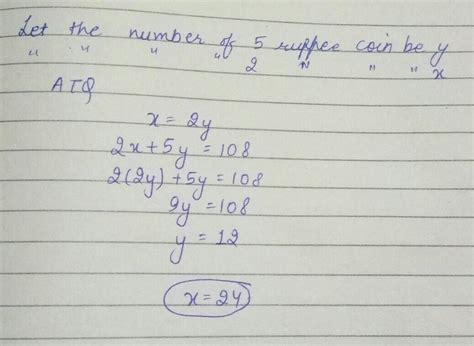 Let the number of 5 ruppee coin be y
" " " " 2 " " " x
ATQ
x = 2y
2x + 5y = 108
2(2y) + 5y = 108
9y = 108
y = 12
x = 24